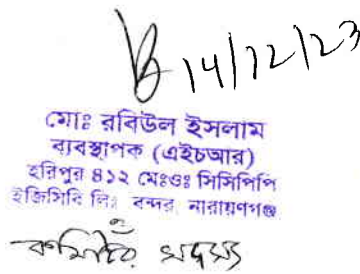 14/12/23
মোঃ রবিউল ইসলাম
ব্যবস্থাপক (এইচআর)
হরিপুর ৪১২ মেঃওঃ সিসিপিপি
ইজিসিবি লিঃ বন্দর, নারায়ণগঞ্জ
ও
কমিটির সদস্য